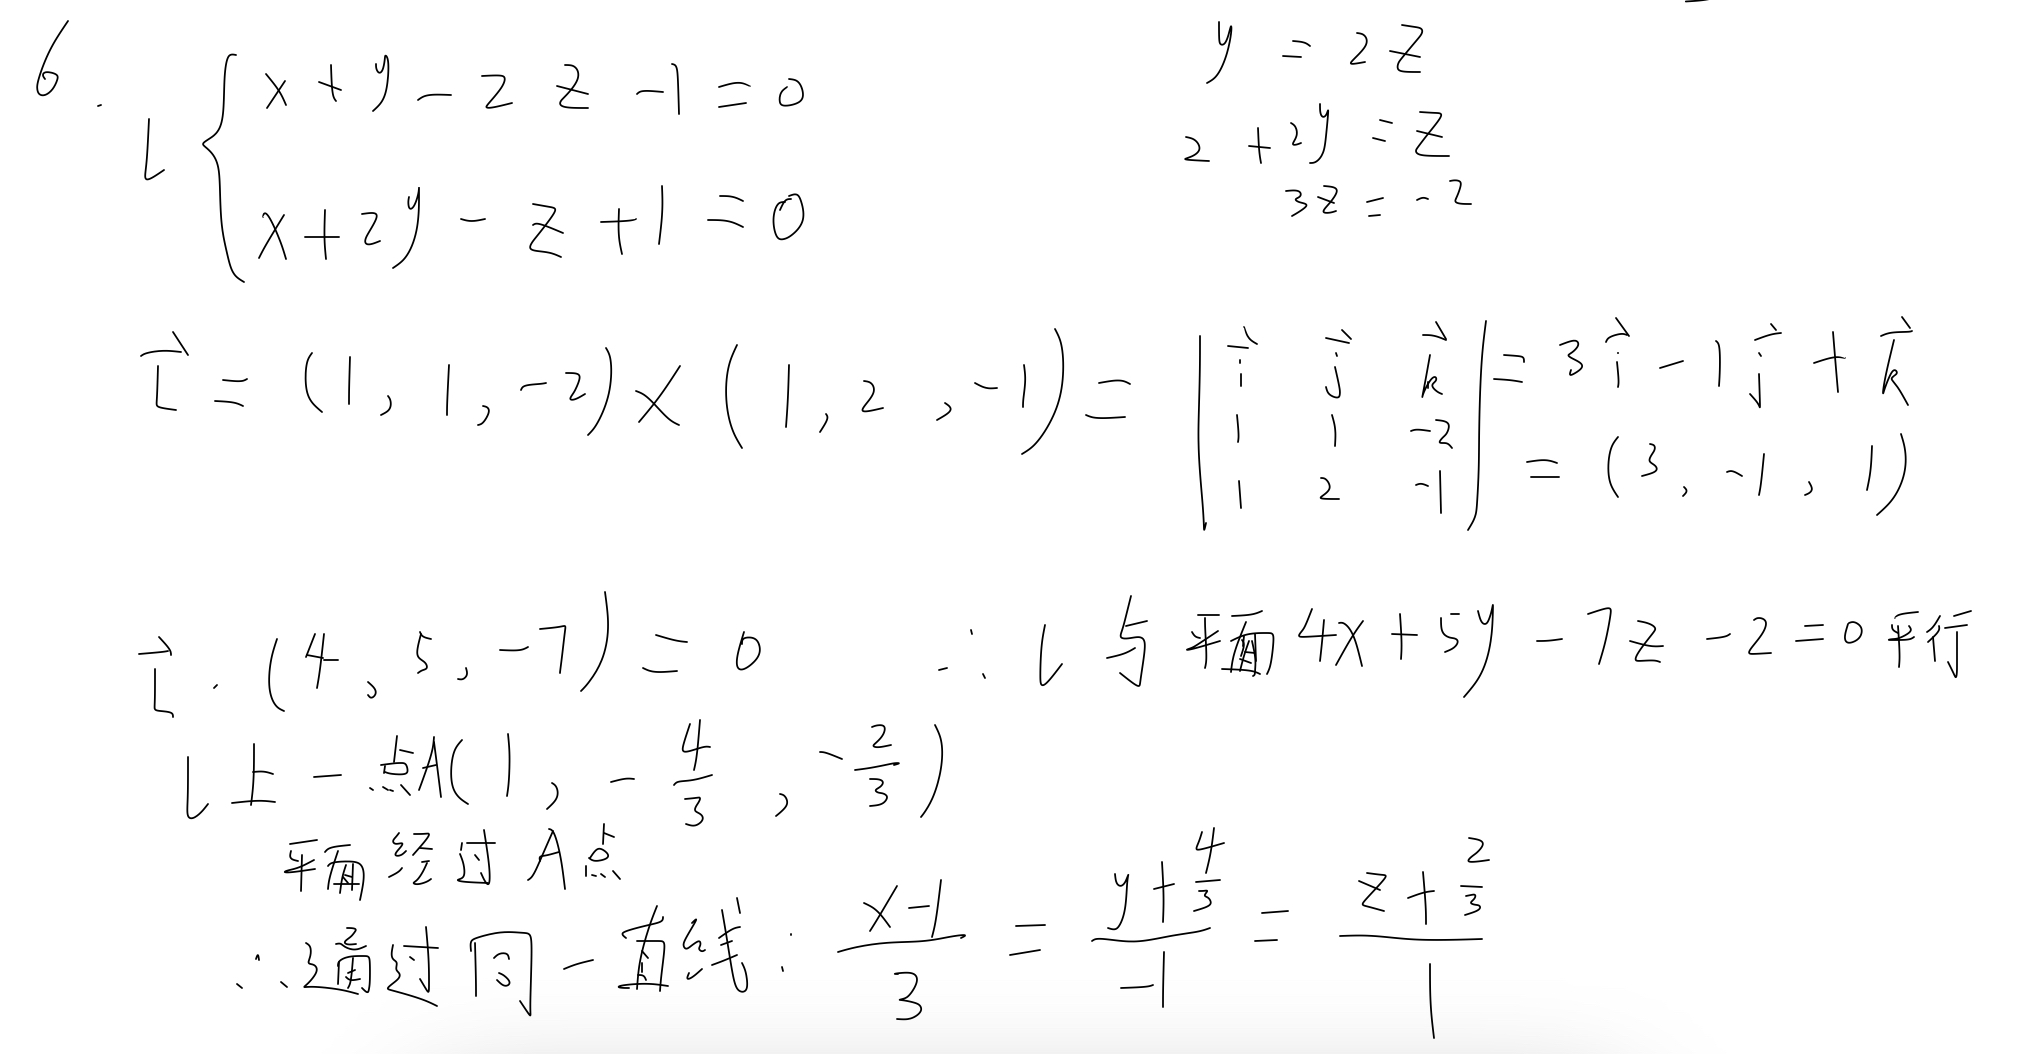 6.
l { x + y - 2 z - 1 = 0
x + 2y - z + 1 = 0
y = 2 z
2 + 2y = z
3z = -2
l⃗ = (1, 1, -2) × (1, 2, -1) = | i⃗ j⃗ k⃗ | = 3 i⃗ - 1 j⃗ + k⃗
1 1 -2
1 2 -1
= (3, -1, 1)
l⃗ · (4, 5, -7) = 0 ∴ l 与 平面 4x + 5y - 7z - 2 = 0 平行
l 上 一 点 A(1, -4/3, -2/3)
平面 经 过 A 点
∴ 通过 同 一 直线 : (x-1)/3 = (y+4/3)/-1 = (z+2/3)/1